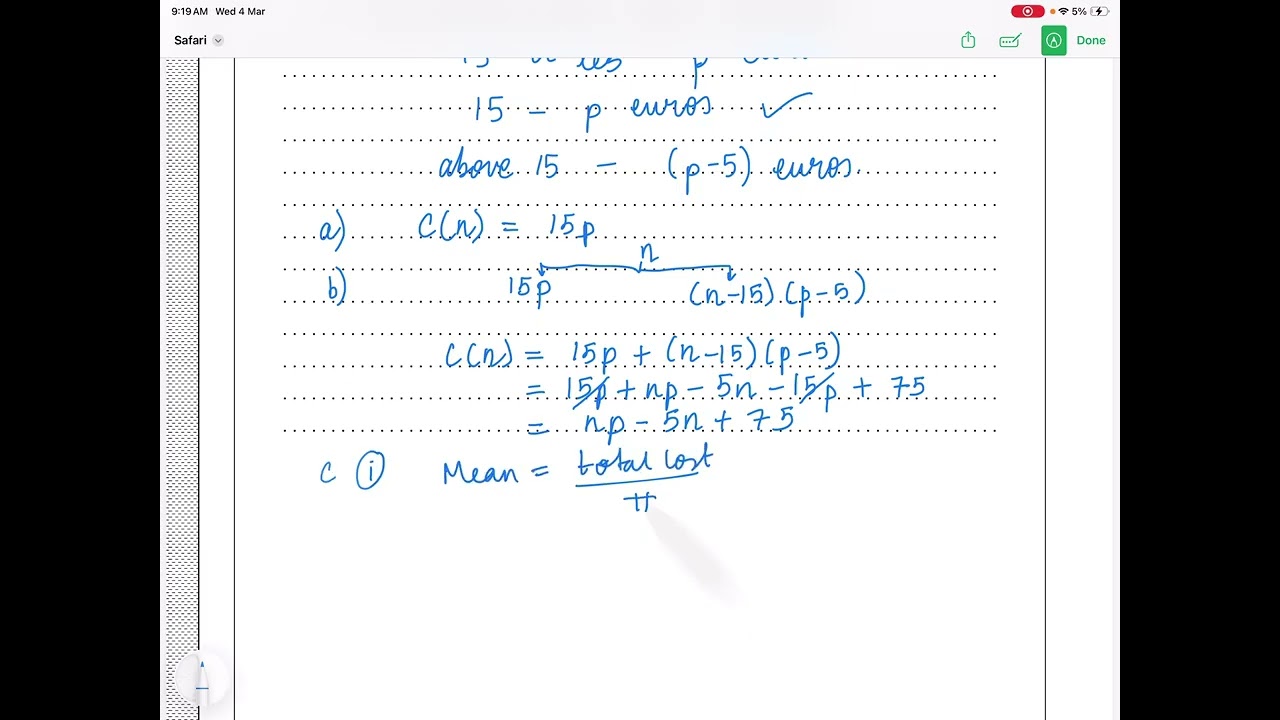 9:19 AM Wed 4 Mar
5%
Safari
Done
15
p
15 - p euros ✓
above 15 - (p-5) euros.
a) C(n) = 15p
n
b) 15p (n-15) (p-5)
C(n) = 15p + (n-15)(p-5)
= 15p + np - 5n - 15p + 75
= np - 5n + 75
c (i) Mean = total cost